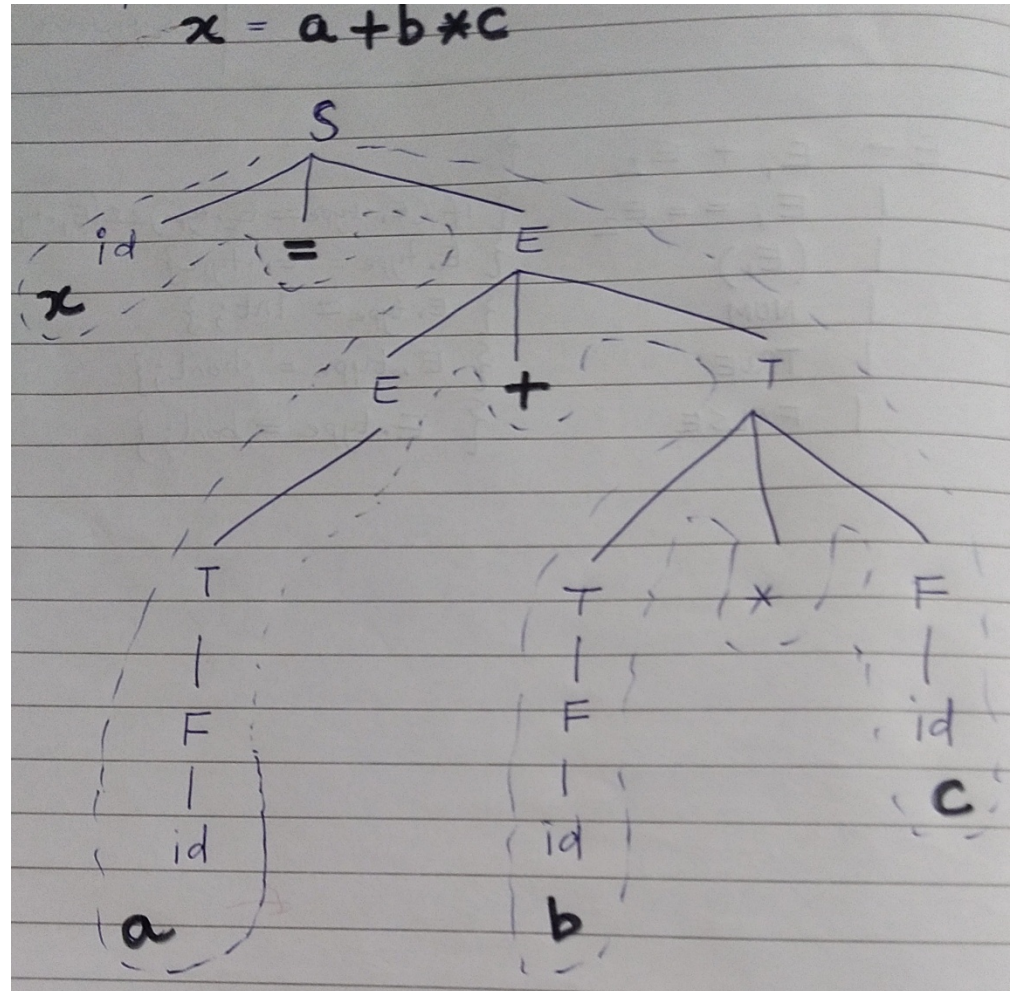 x = a+b*c
S
id = E
x
E + T
T
T * F
F
F
id
id
id
c
a
b